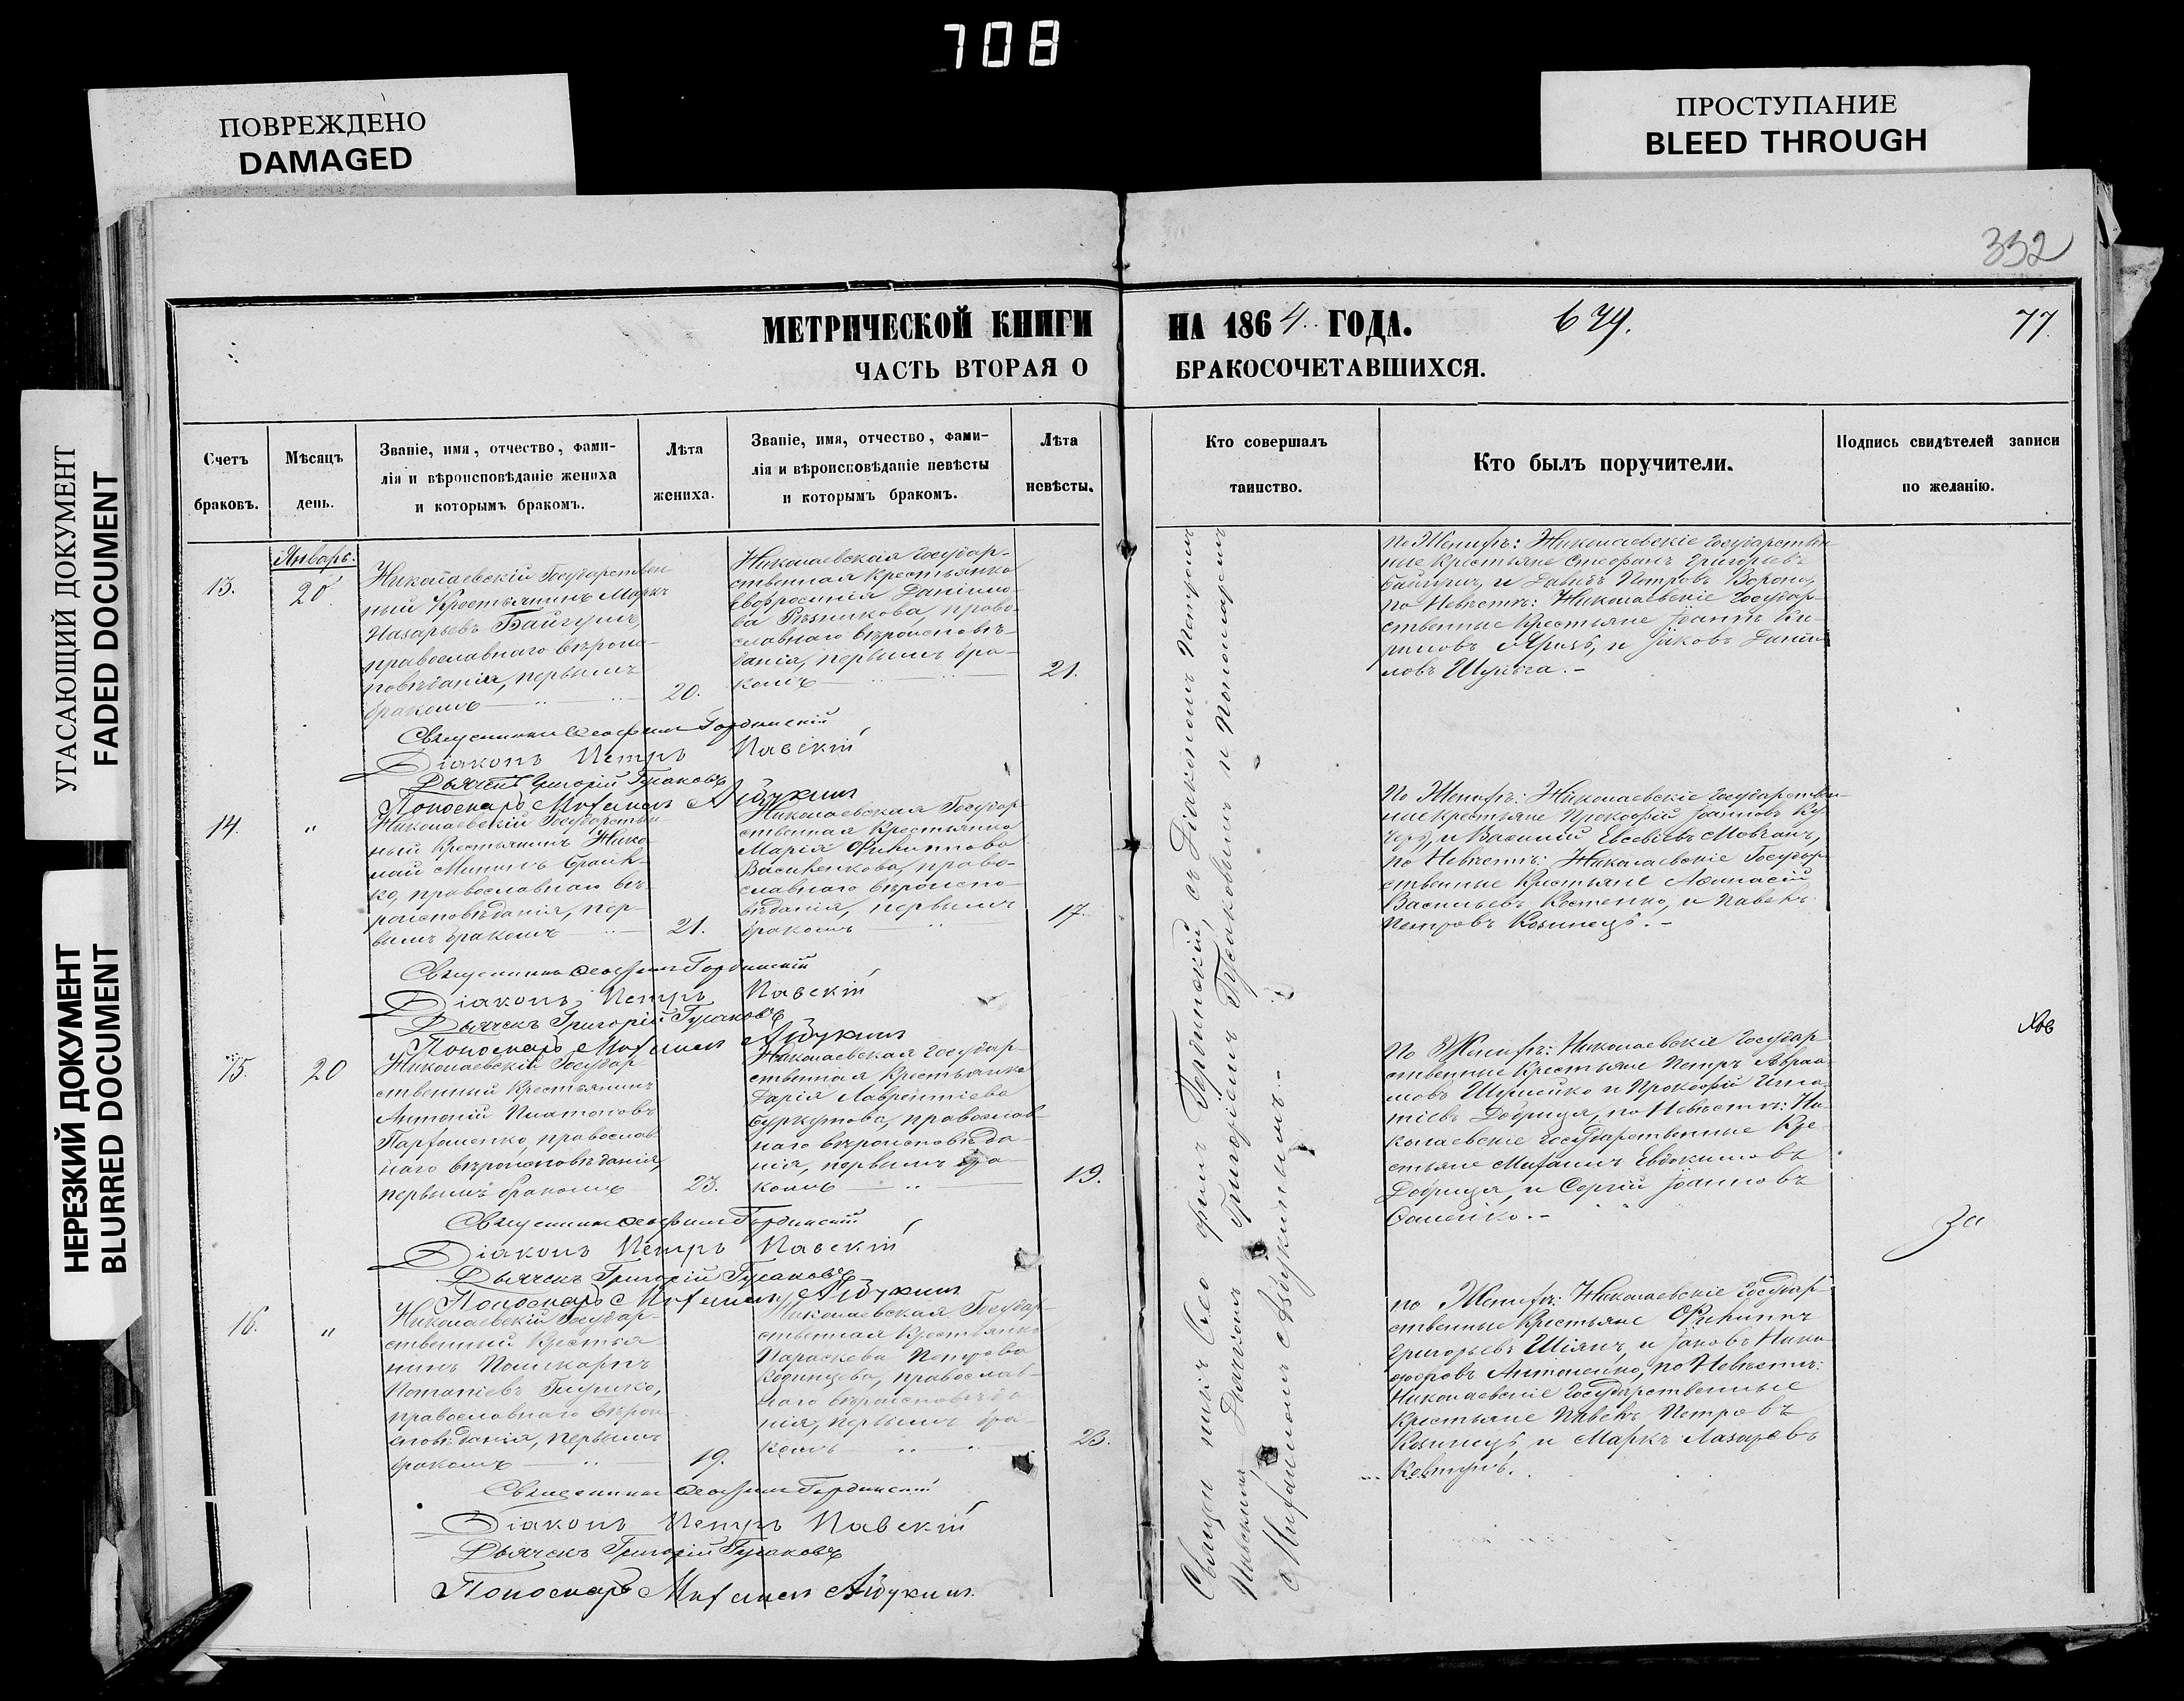 708
ПОВРЕЖДЕНО
DAMAGED
ПРОСТУПАНИЕ
BLEED THROUGH
УГАСАЮЩИЙ ДОКУМЕНТ
FADED DOCUMENT
НЕРЕЗКИЙ ДОКУМЕНТ
BLURRED DOCUMENT
332
МЕТРИЧЕСКОЙ КНИГИ НА 1864 ГОДА.
679.
77.
ЧАСТЬ ВТОРАЯ О БРАКОСОЧЕТАВШИХСЯ.
Счетъ
браковъ.
Мѣсяцъ
день.
Званіе, имя, отчество, фами-
лія и вѣроисповѣданіе жениха
и которымъ бракомъ.
Лѣта
жениха.
Званіе, имя, отчество, фами-
лія и вѣроисповѣданіе невѣсты
и которымъ бракомъ.
Лѣта
невѣсты.
Кто совершалъ
таинство.
Кто былъ поручители.
Подпись свидѣтелей записи
по желанію.
13.
Январь.
20.
Николаевскій Государствен
ный Крестьянинъ Маркъ
Назарьевъ Байгушъ,
православнаго вѣроис-
повѣданія, первымъ
бракомъ
20.
Николаевская Государ-
ственная Крестьянка
Евфросинія Данило-
ва Рѣзникова, право-
славнаго вѣроисповѣ-
данія, первымъ бра-
комъ
21.
По Женихѣ: Николаевскіе Государствен
ные Крестьяне Стефанъ Григорьевъ
Байгушъ, и Давидъ Петровъ Ворона,
по Невѣстѣ: Николаевскіе Государ-
ственные Крестьяне Іоаннъ Ки-
риловъ и Іаковъ Дании
ловъ Шуліга.-
Священникъ Іосифъ Гординскій
Діаконъ Петръ Павскій
Дьячекъ Григорій Гусаковъ
Пономарь Митфанъ Абукинъ
14.
"
Николаевскій Государствен
ный Крестьянинъ Нико-
лай Мининъ
ко, православнаго вѣ-
роисповѣданія, пер-
вымъ бракомъ
21.
Николаевская Государ
ственная Крестьянка
Марія Филиппова
Василенкова, право-
славнаго вѣроиспо-
вѣданія, первымъ
бракомъ
17.
По Женихѣ: Николаевскіе Государствен-
ные крестьяне Прокофій Іоанновъ Ку-
черъ, и Василій Евсевіевъ Мовчанъ,
по Невѣстѣ: Николаевскіе Государ-
ственные Крестьяне Афанасій
Васильевъ Костенко, и Павелъ
Петровъ Козинецъ.-
Священникъ Іосифъ Гординскій
Діаконъ Петръ Павскій
Дьячекъ Григорій Гусаковъ
Пономарь Абукинъ
15.
20
Николаевскій Государ-
ственный Крестьянинъ
Антоній Платоновъ
Парфаменко, православ-
наго вѣроисповѣданія,
первымъ бракомъ
23.
Николаевская Государ-
ственная Крестьянка
Дарія Лаврентіева
Буркутова, православ-
наго вѣроисповѣда-
нія, первымъ бра-
комъ
19.
По Женихѣ: Николаевскія Государ-
ственные Крестьяне Петръ Авраа-
мовъ Шулейко и Прокофій Игна-
тіевъ Добрица, по Невѣстѣ: Ни-
колаевскіе Государственные Кре-
стьяне Евдокимовъ
Добрица, и Сергій Іоанновъ
Священникъ Іосифъ Гординскій
Діаконъ Петръ Павскій
Дьячекъ Григорій Гусаковъ
Пономарь Абукинъ
16.
"
Николаевскій Государ-
ственный Крестья-
нинъ Поликарпъ
Потапіевъ Глушко,
православнаго вѣрои-
сповѣданія, первымъ
бракомъ
19.
Николаевская Государ-
ственная Крестьянка
Параскева Петрова
православ-
наго вѣроисповѣда-
нія, первымъ бра-
комъ
23.
по Женихѣ: Николаевскіе Государ-
ственные Крестьяне Филиппъ
Григорьевъ Шіянъ, и Іаковъ Ники-
форовъ Антоненко, по Невѣстѣ:
Николаевскіе Государственные
Крестьяне Павелъ Петровъ
Козинецъ, и Маркъ Лазаревъ
Ковтунъ.
Священникъ Іосифъ Гординскій
Діаконъ Петръ Павскій
Дьячекъ Григорій Гусаковъ
Пономарь Абукинъ.
Священникъ Гординскій, съ Діакономъ Петромъ
Павскимъ Дьячкомъ Григоріемъ Гусаковымъ и Пономаремъ
Абукинымъ.-